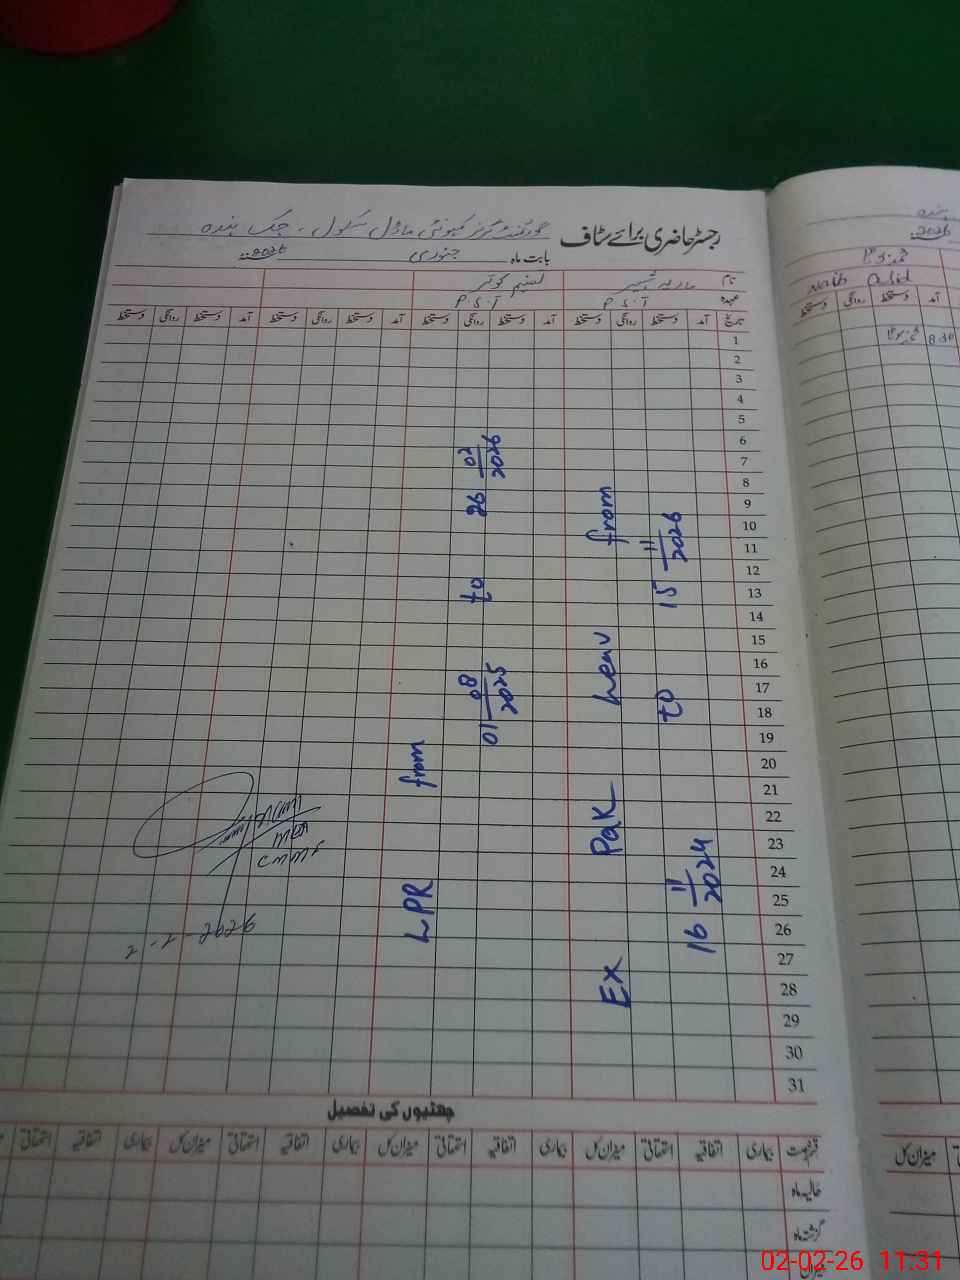 رجسٹر حاضری برائے سٹاف گورنمنٹ گرلز کمیونٹی ماڈل سکول، چک بندہ
بابت ماہ جنوری 2026ء
نام ماریہ تسنیم کوثر
عہدہ P.S.T P.S.T
تاریخ آمد دستخط روانگی دستخط آمد دستخط روانگی دستخط آمد دستخط روانگی دستخط آمد دستخط روانگی دستخط
1
2
3
4
5
6
7
8
9
10
11
12
13
14
15
16
17
18
19
20
21
22
23
24
25
26
27
28
29
30
31
Ex Pak Leav from
16 11/2024 to 15 11/2026
LPR from
01 08/2025 to 26 02/2026
MEA
2-2-2026
چھٹیوں کی تفصیل
قسم رخصت بیماری اتفاقیہ استحقاقی میزان کل بیماری اتفاقیہ استحقاقی میزان کل بیماری اتفاقیہ استحقاقی میزان کل بیماری اتفاقیہ استحقاقی
حالیہ ماہ
گزشتہ ماہ
میزان
بندہ
2026
Naib Qasid
آمد دستخط روانگی دستخط
8:30
میزان کل
02-02-26 11:31